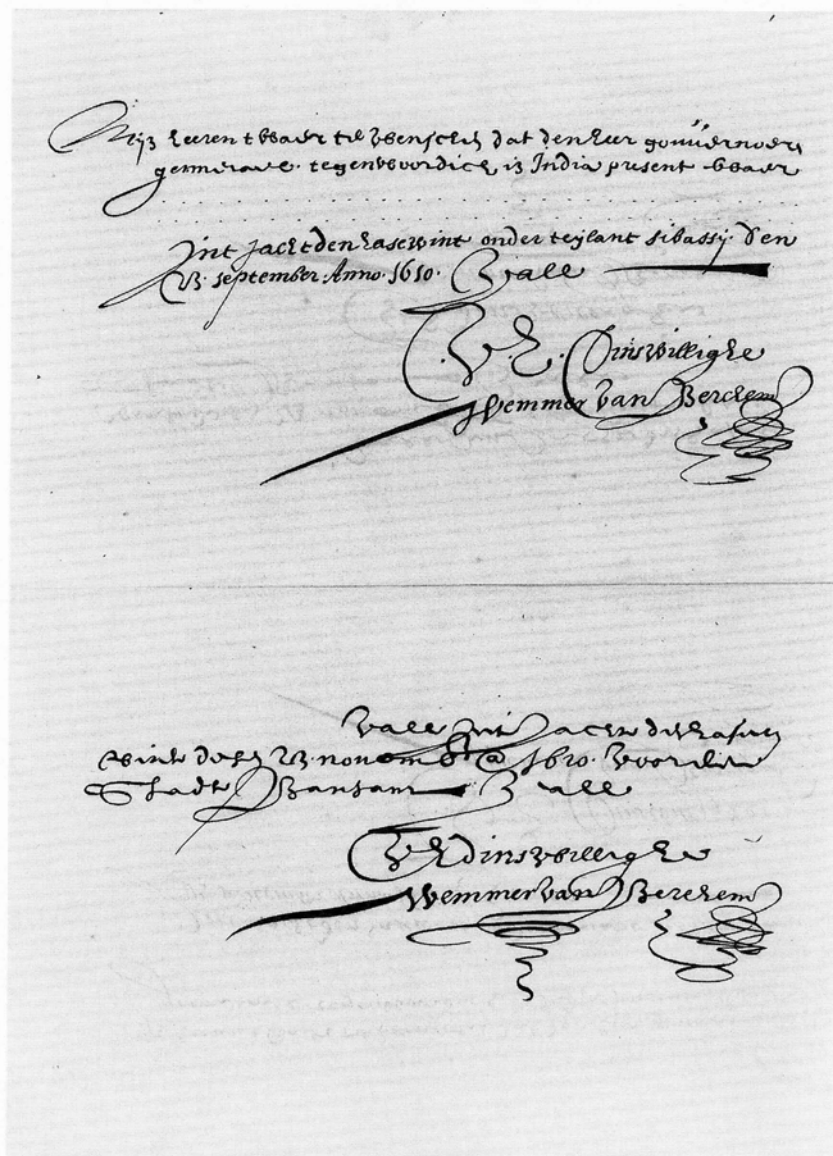 Mijn heeren twaer te wenschen dat den heer gouverneur
generael tegenwoordich in India present waer
Int Jacht den hasewint onder teylant sibassij den
23. september Anno 1610. Vale
V. E. Dinswillighe
Wemmer van Berchem
Vale Int Jacht de hasen
wint desen 23 novemb @ 1610. Voor die
Stadt Bantam Vale
V E dinswillighe
Wemmer van Berchem